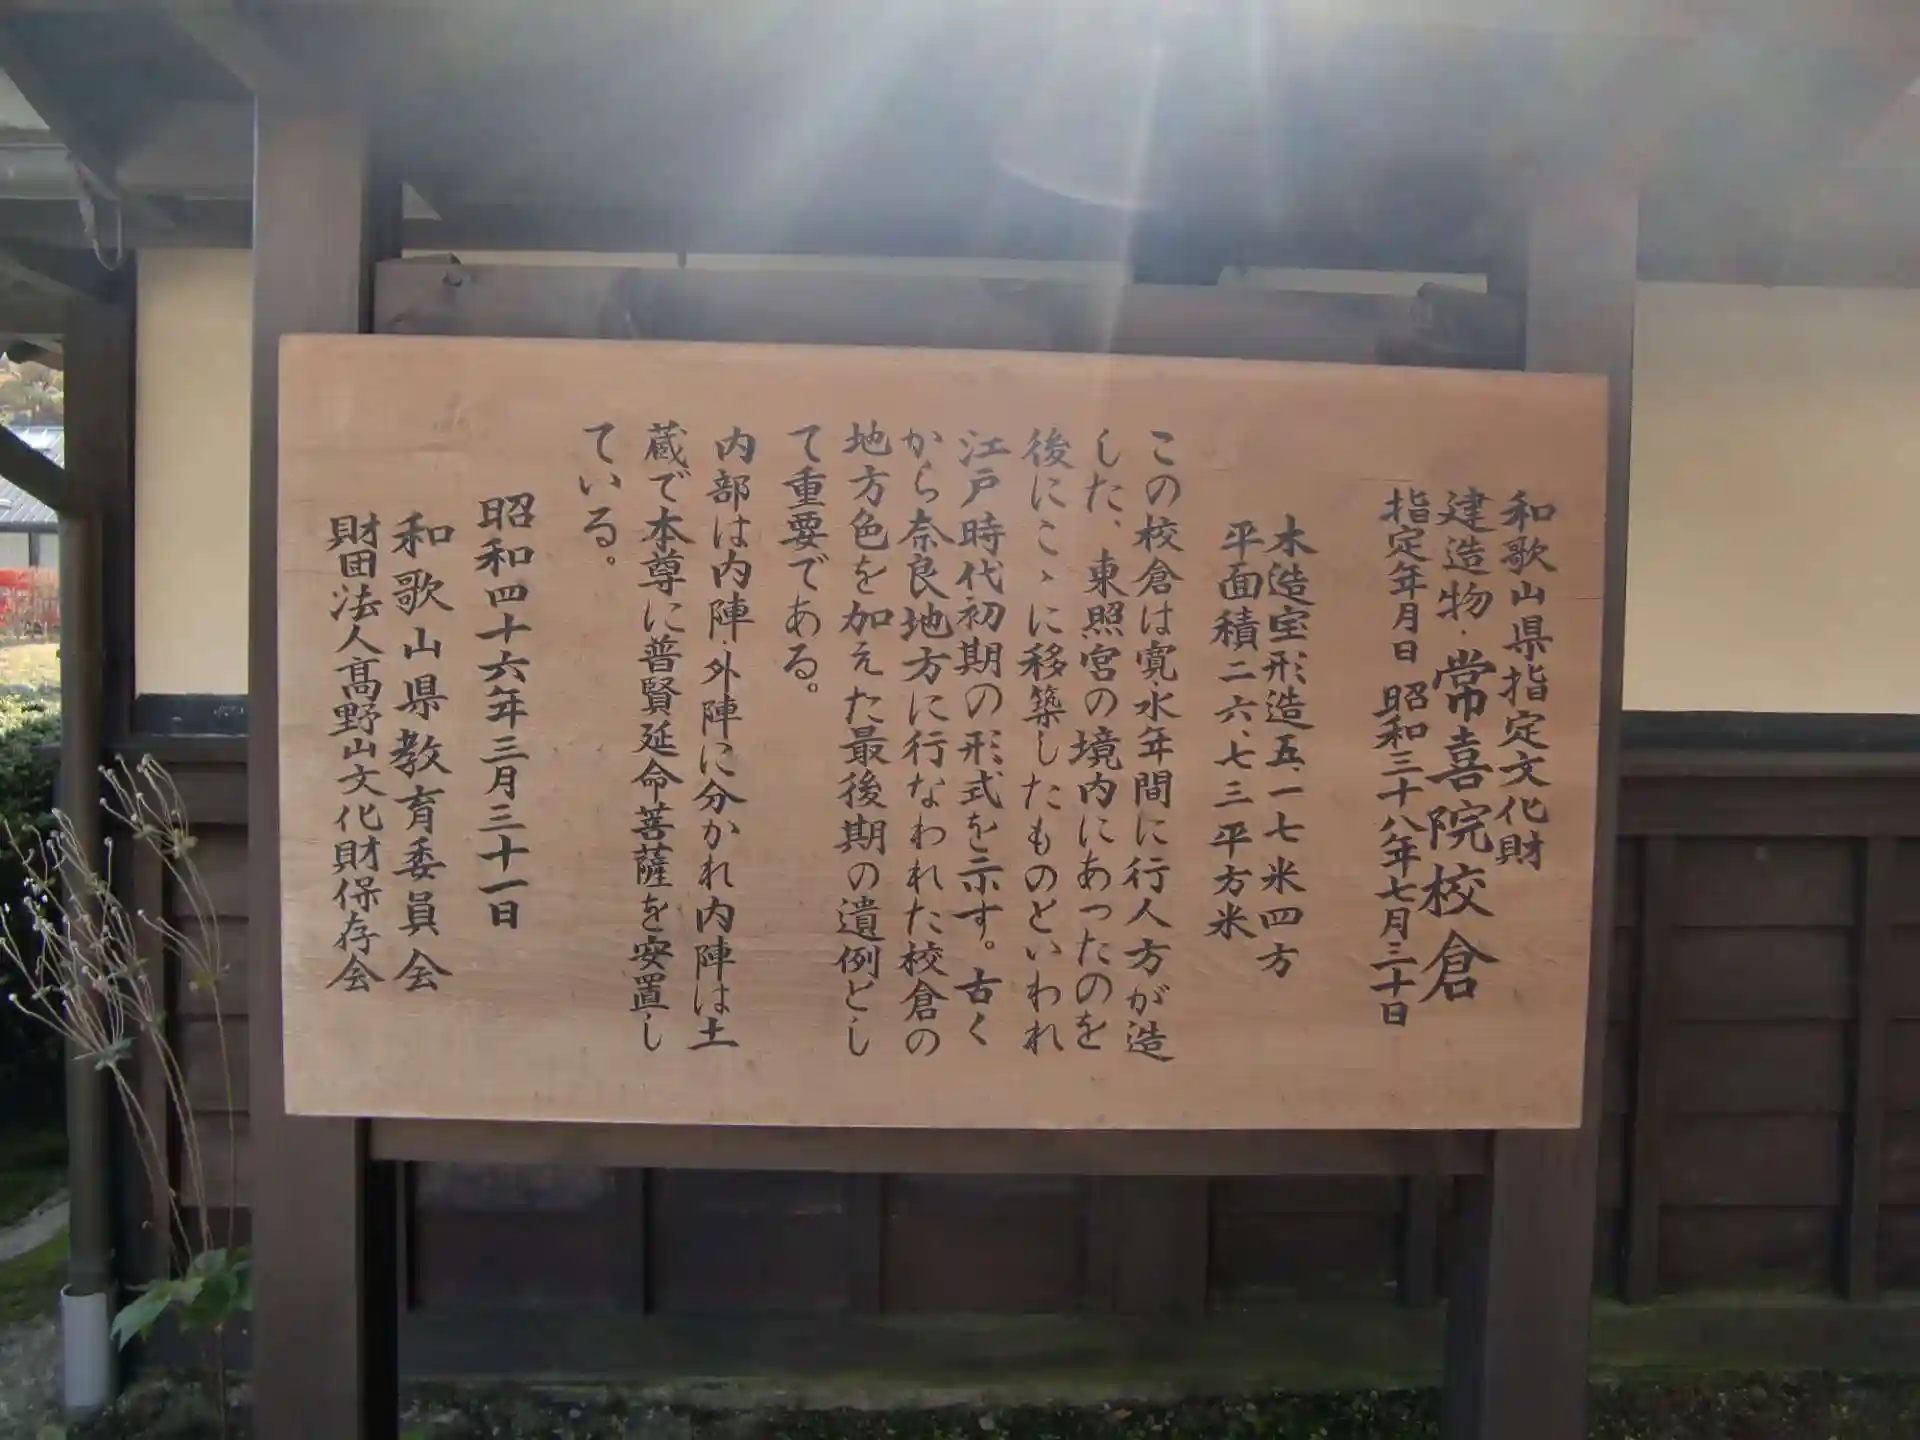 和歌山県指定文化財
建造物・常喜院校倉
指定年月日 昭和三十八年七月三十日
木造宝形造五、一七米四方
平面積二六、七三平方米
この校倉は寛永年間に行人方が造
した、東照宮の境内にあったのを
後にこゝに移築したものといわれ
江戸時代初期の形式を示す。古く
から奈良地方に行なわれた校倉の
地方色を加えた最後期の遺例とし
て重要である。
内部は内陣・外陣に分かれ内陣は土
蔵で本尊に普賢延命菩薩を安置し
ている。
昭和四十六年三月三十一日
和歌山県教育委員会
財団法人高野山文化財保存会